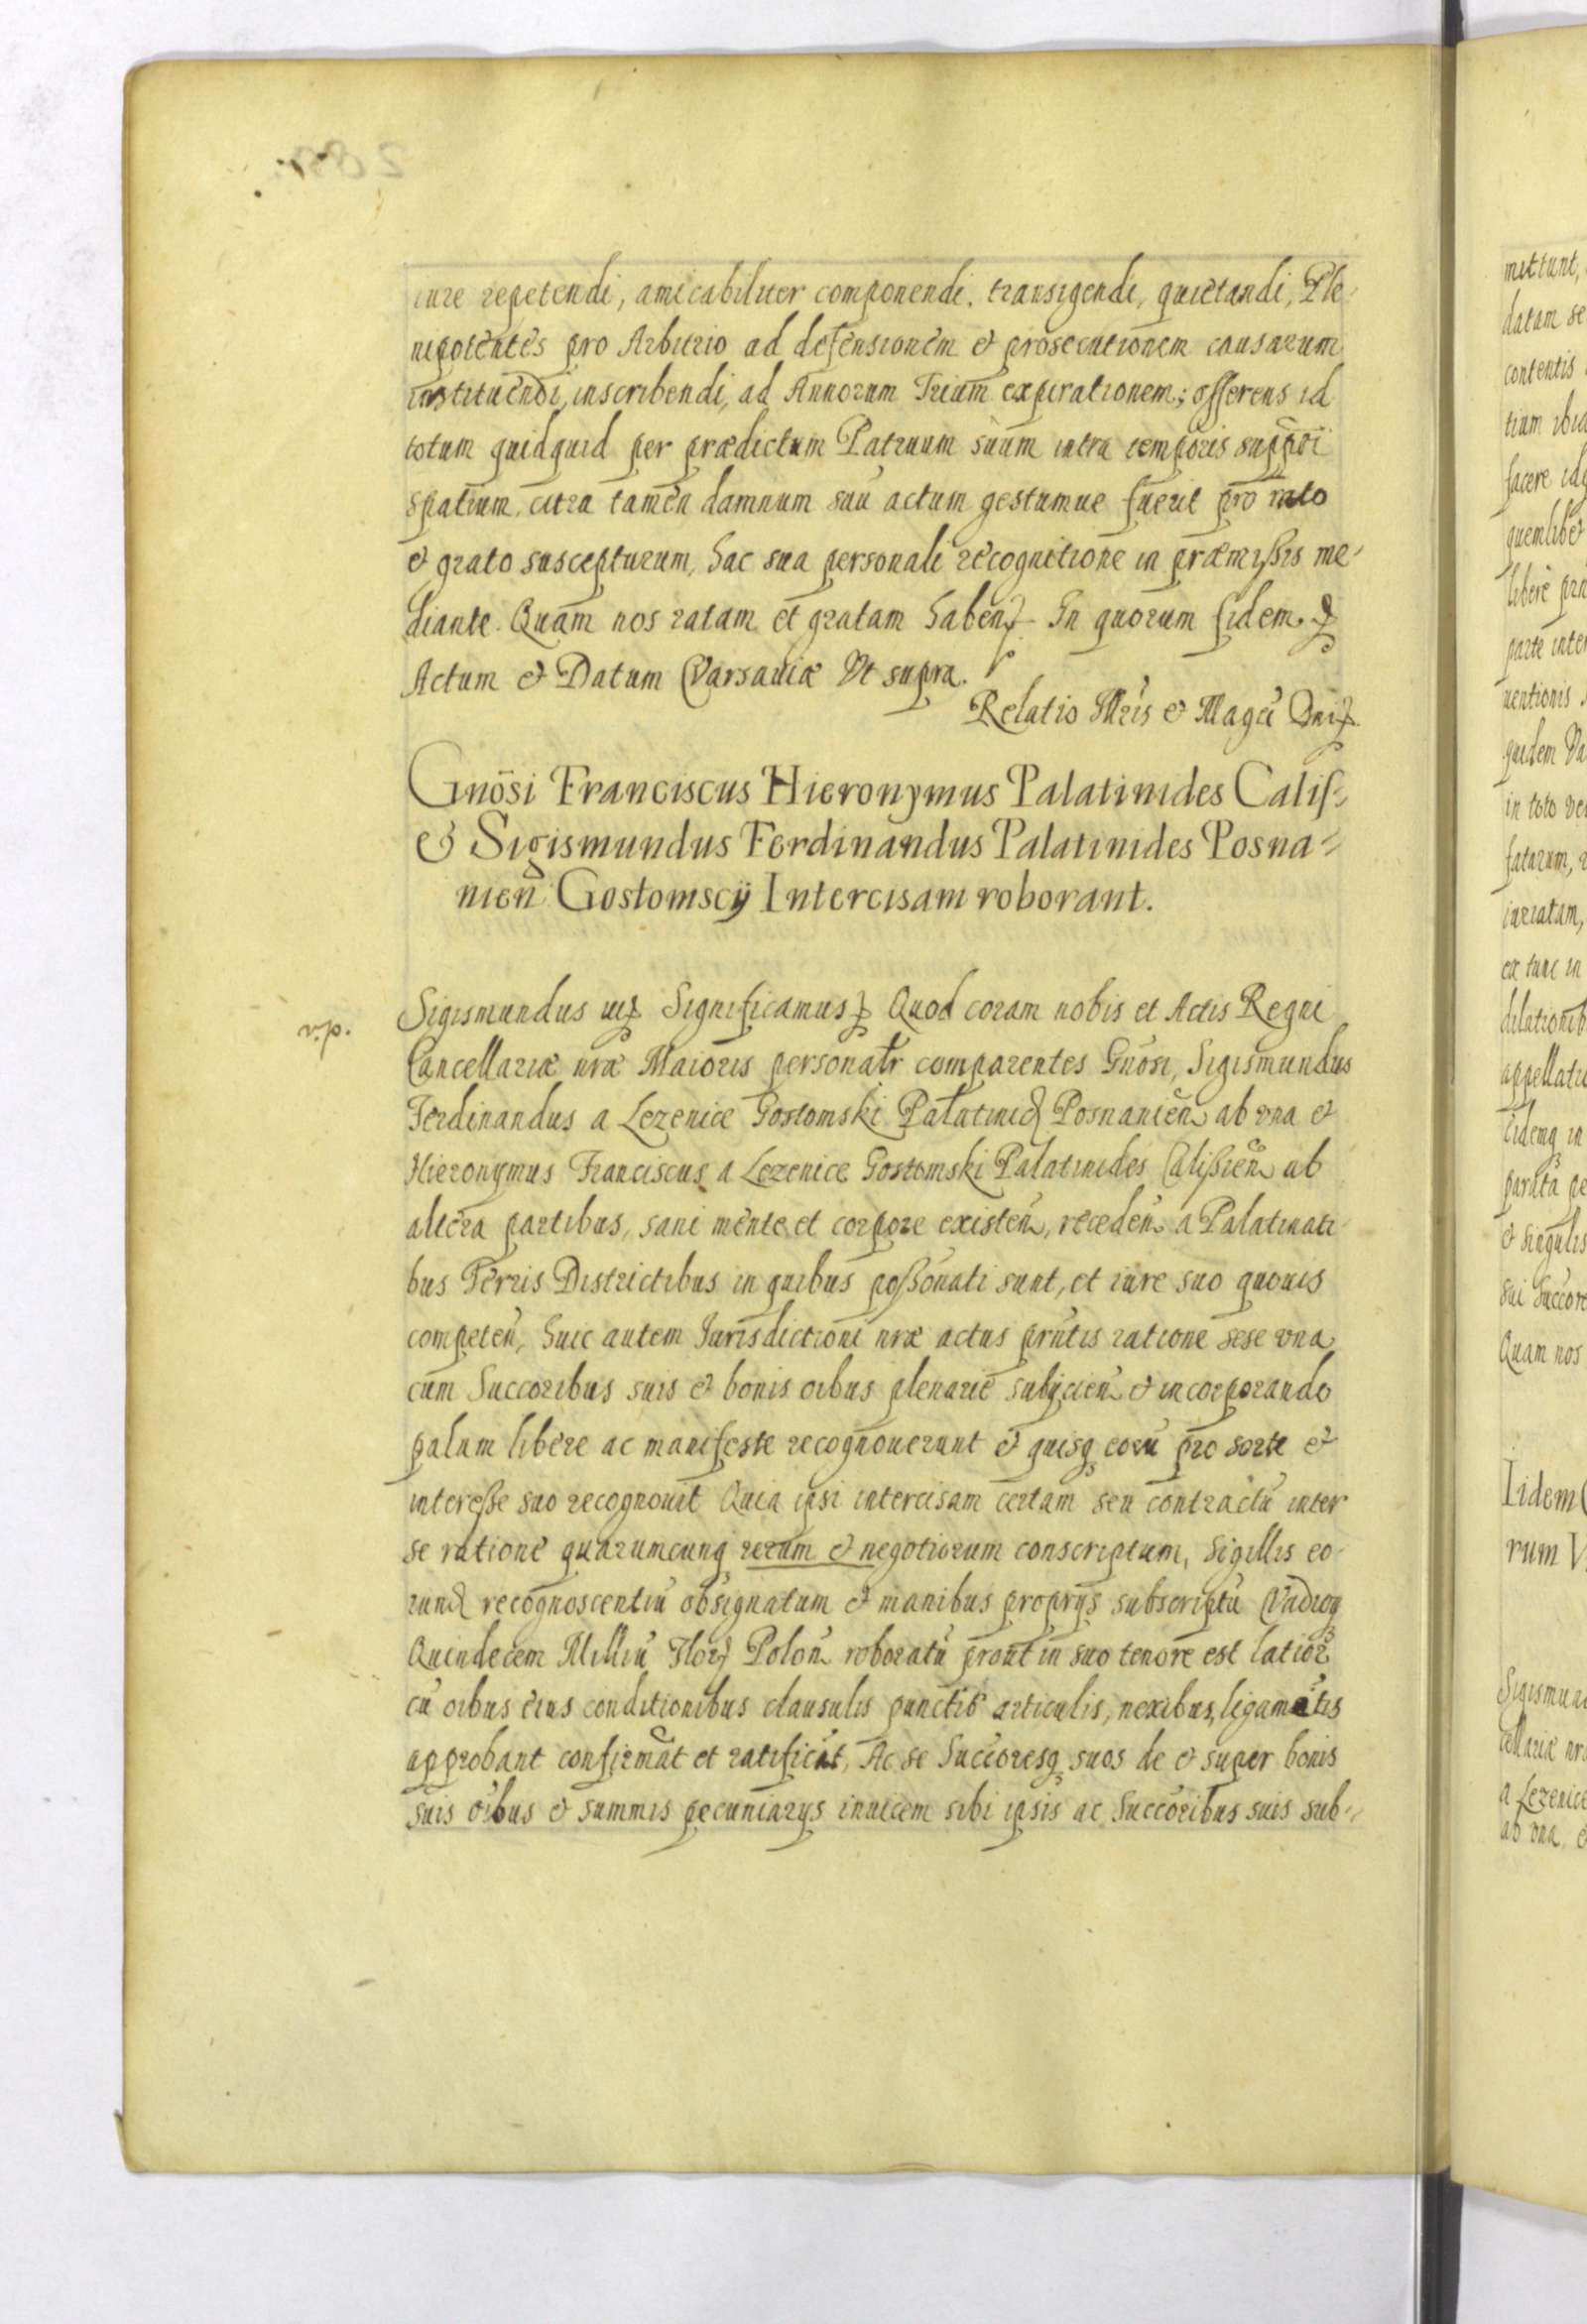 iure repetendi, amicabiliter componendi. transigendi, quietandi, Ple-
nipotentes pro Arbitrio ad defensionem et prosecutionem causarum
instituendi, inscribendi, ad Annorum Trium expirationem; offerens id
totum quidquid per prædictum Patruum suum intra temporis supprti
spatium, citra tamen damnum suu actum gestumue fuerit pro rato
et grato suscepturum, hac sua personali recognitione in præmißis me-
diante. Quam nos ratam et gratam haben In quorum fidem
Actum et Datum Varsaviæ Vt supra.
Relatio Illris et Magci Dni
Gnōsi Franciscus Hieronymus Palatinides Calis-
& Sigismundus Ferdinandus Palatinides Posna-
nien̄ Gostomscÿ Intercisam roborant.
v.p.
Sigismundus Significamus Quod coram nobis et Actis Regni
Cancellariæ nræ Maioris personalr comparentes Gnosi, Sigismundus
Ferdinandus a Lezenice Gostomski Palatinid Posnanien ab vna et
Hieronymus Franciscus a Lezenice Gostomski Palatinides Calißien ab
altera partibus, sani mente et corpore existen, receden a Palatinati
bus Terris Districtibus in quibus poßonati sunt, et iure suo quouis
competen, huic autem Jurisdictioni nræ actus prntis ratione sese vna
cum Succoribus suis et bonis oibus plenarie subijcien et incorporando
palam libere ac manifeste recognouerunt et quisq eorū pro sorte et
intereße suo recognouit Quia ipsi intercisam certam seu contractū inter
se ratione quarumcunq rerum et negotiorum conscriptum, Sigillis eo-
rund recognoscentiū obsignatum et manibus proprÿs subscriptū Vadioq
Quindecem Milliū Flor Polon roboratū prout in suo tenore est latior
cū oibus eius conditionibus clausulis punctis articulis, nexibus, ligamētis
approbant confirmāt et ratificāt, Ac se Succoresq suos de et super bonis
suis oibus et summis pecuniarÿs inuicem sibi ipsis ac Succoribus suis sub-